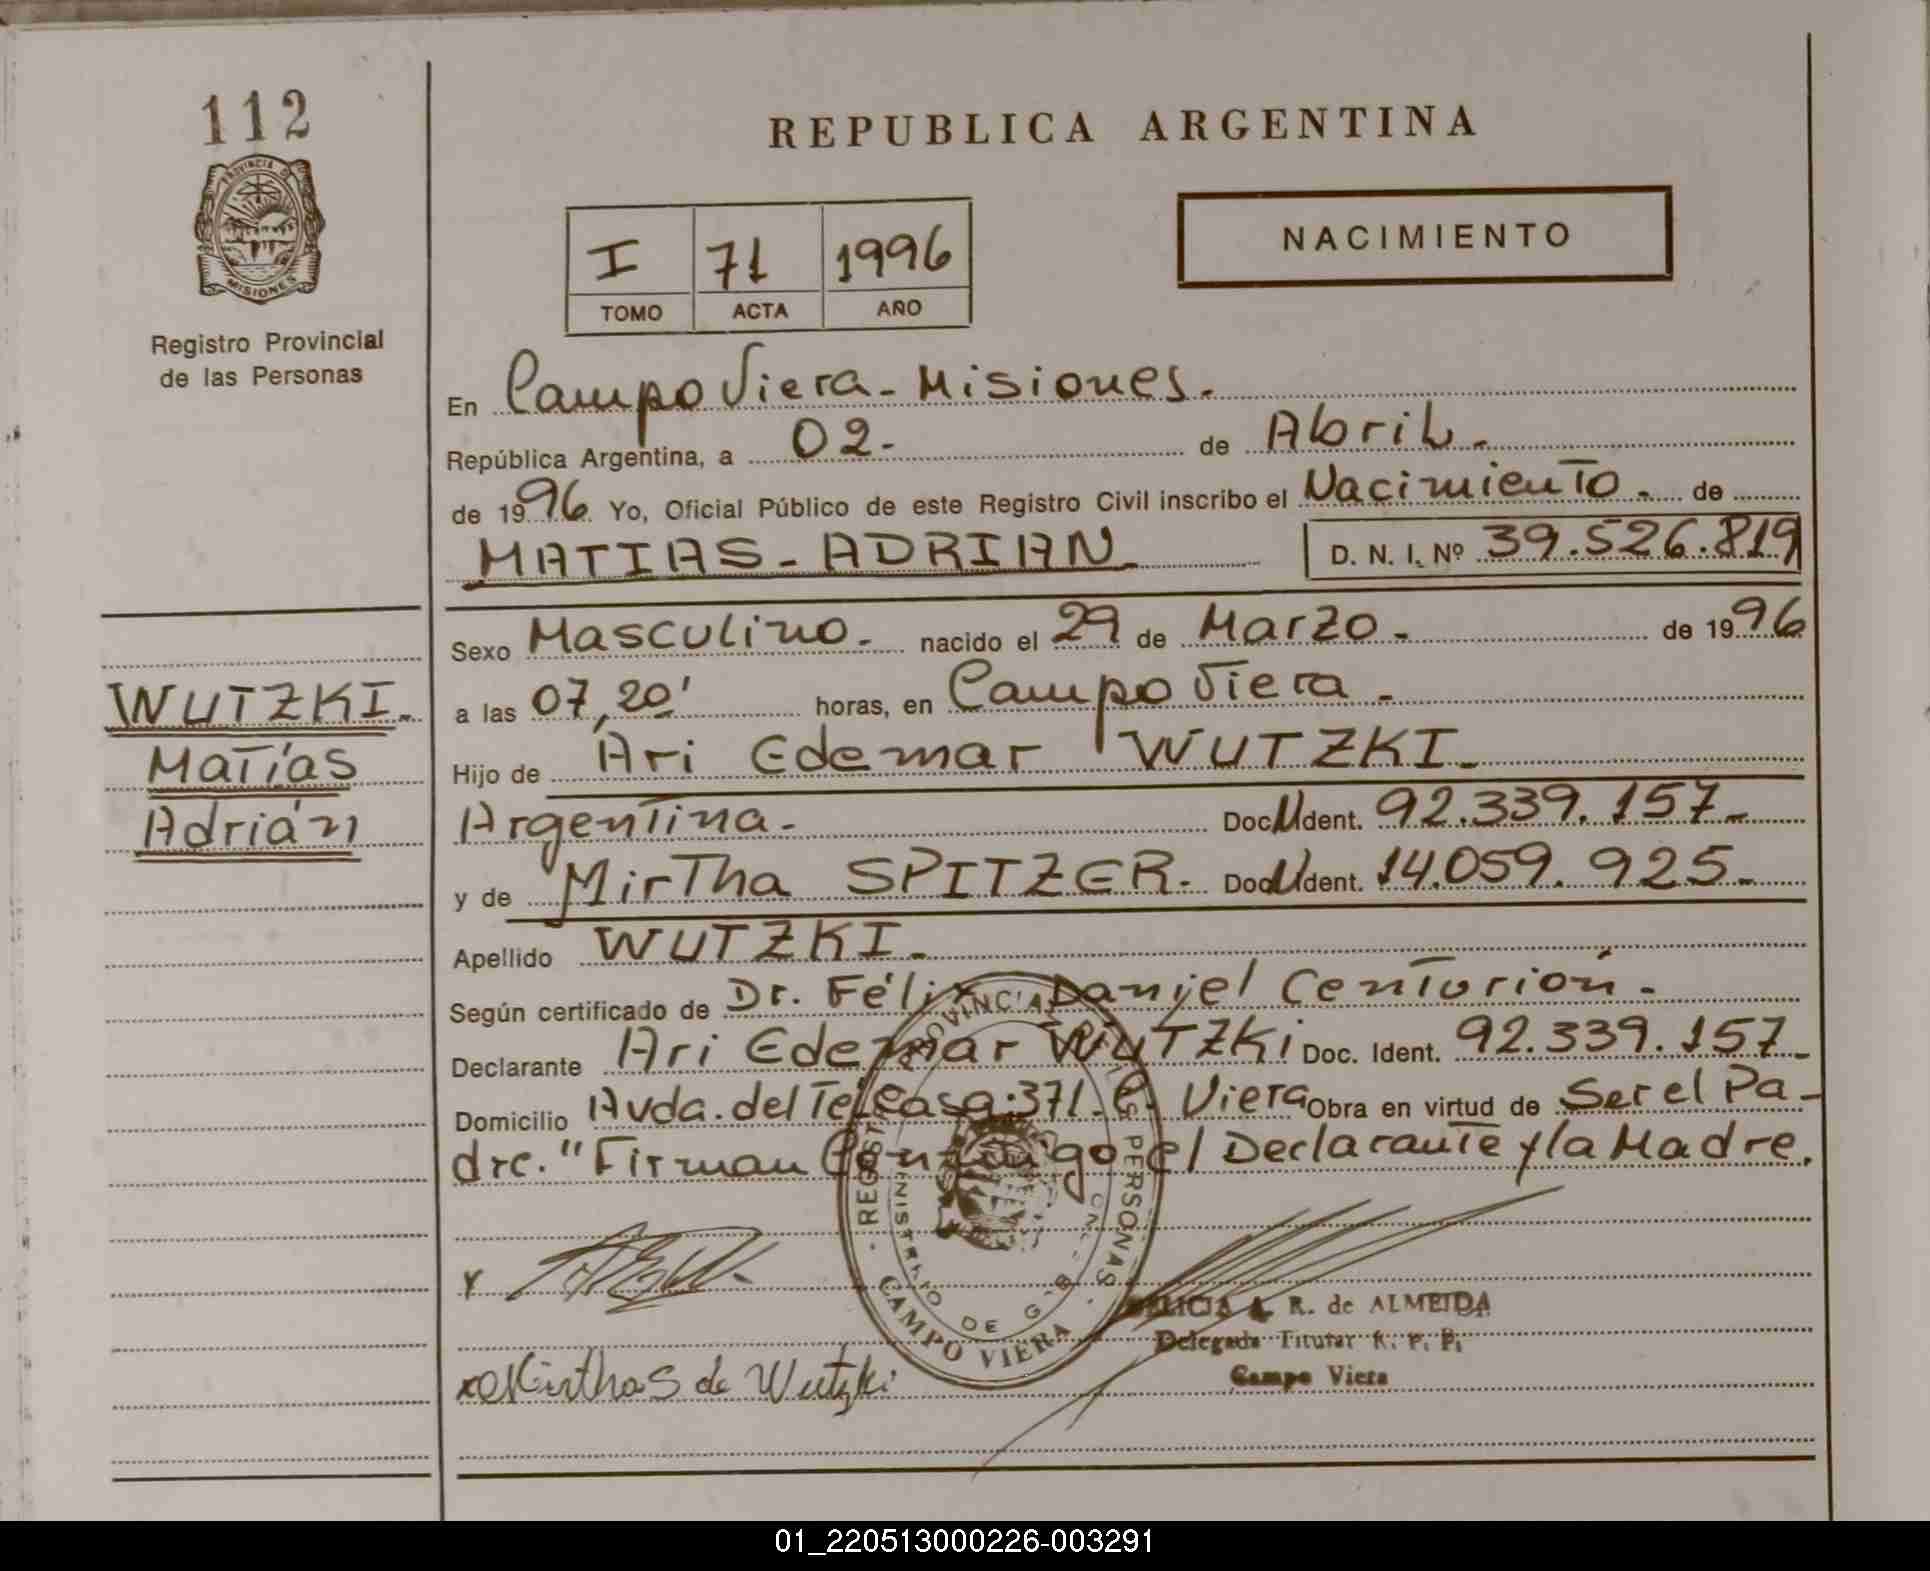 112
PROVINCIA D
MISIONES
Registro Provincial
de las Personas
REPUBLICA ARGENTINA
I 71 1996
TOMO ACTA AÑO
NACIMIENTO
En Campo Viera - Misiones.
República Argentina, a 02- de Abril.
de 1996 Yo, Oficial Público de este Registro Civil inscribo el Nacimiento. de
MATIAS - ADRIAN D. N. I. Nº 39.526.819
Sexo Masculino. nacido el 29 de Marzo. de 1996
WUTZKI.
Matías
Adrián
a las 07,20' horas, en Campo Viera.
Hijo de Ari Edemar WUTZKI.
Argentina. Doc. Ident. 92.339.157.
y de Mirtha SPITZER. Doc. Ident. 14.059.925.
Apellido WUTZKI.
Según certificado de Dr. Félix Daniel Centurión.
Declarante Ari Edemar WUTZKi Doc. Ident. 92.339.157.
Domicilio Avda. del Té Casa:371. C. Viera Obra en virtud de Ser el Pa-
dre. "Firman Conmigo el Declarante y la Madre.
REGIST PROVINCIAL PERSONAS
CAMPO VIERA
Y
Mirtha S de Wutzki
FELICIA A. R. de ALMEIDA
Delegada Titular R. P. P.
Campo Viera
01_220513000226-003291